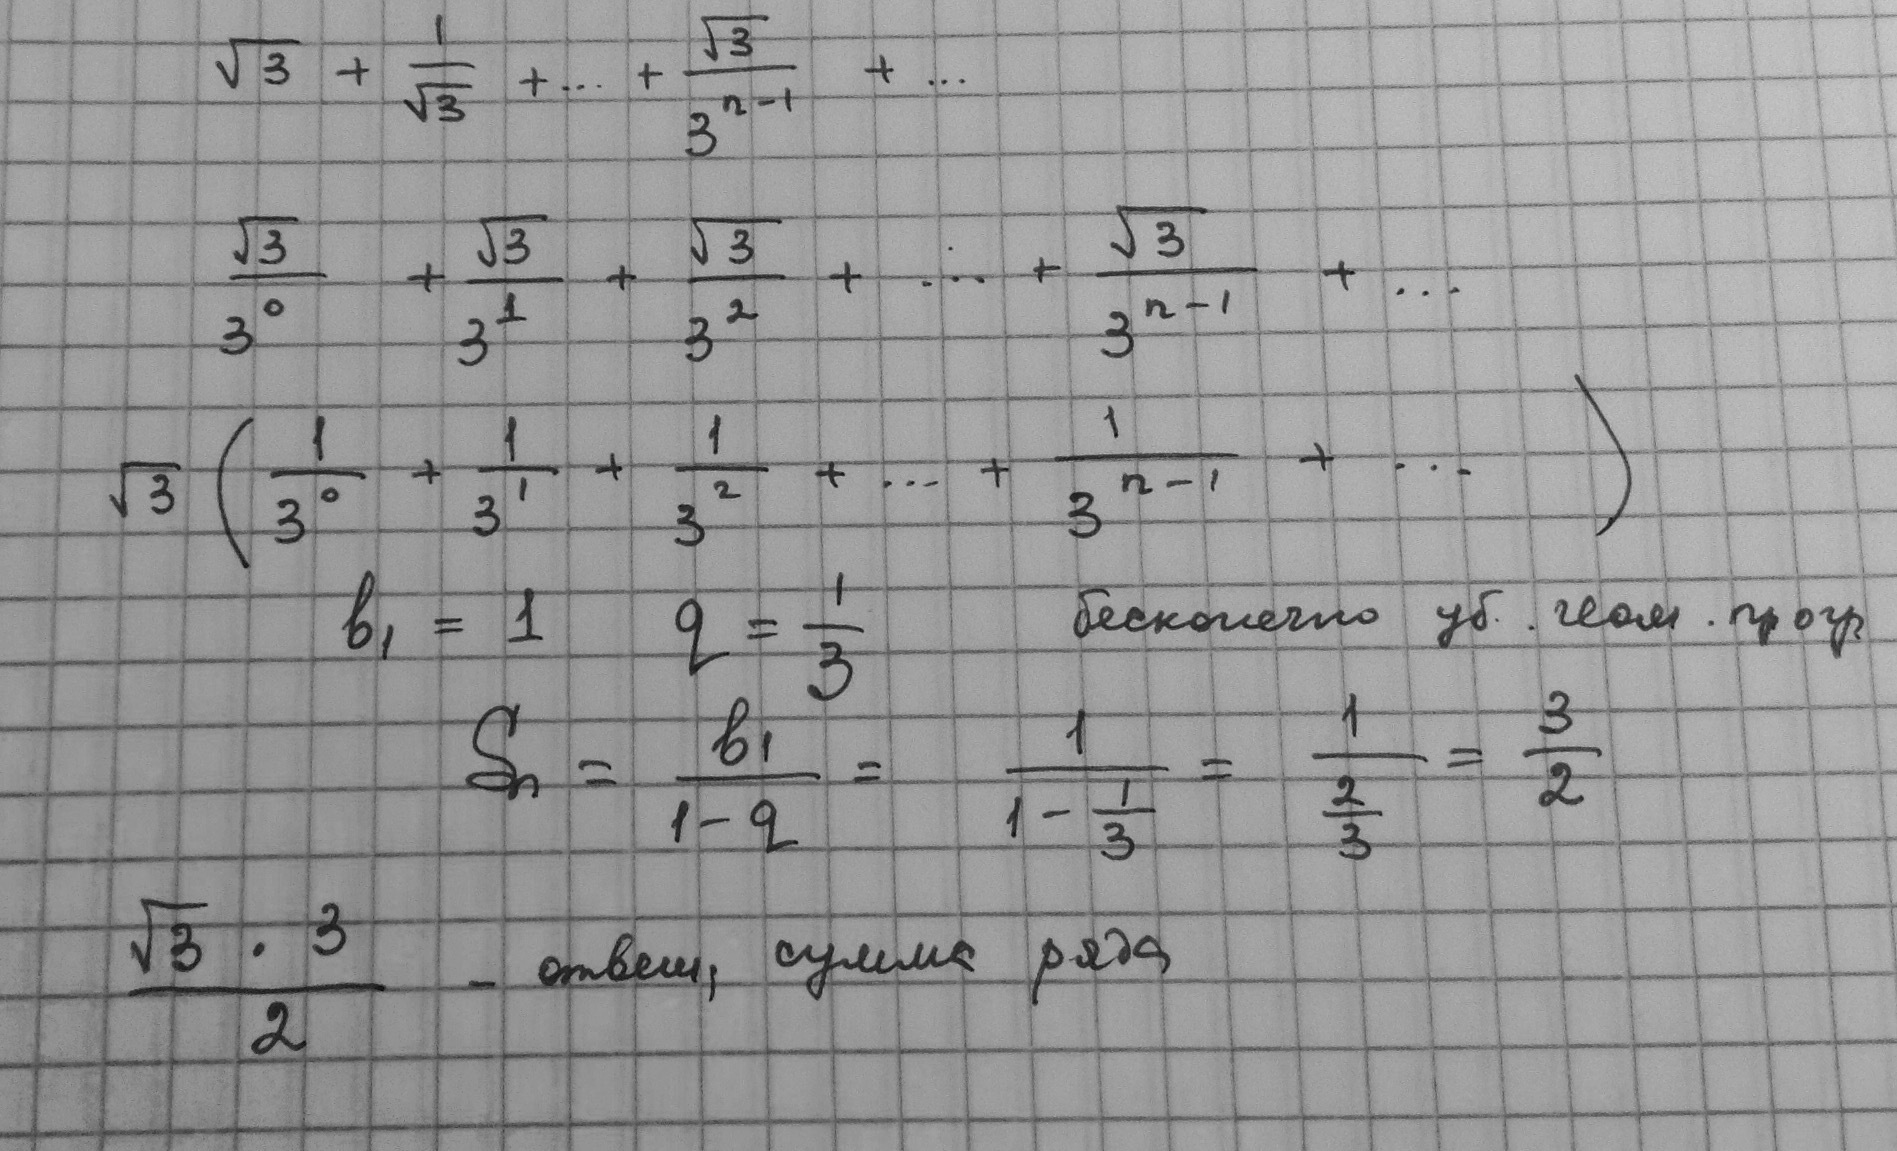 √3 + 1/√3 + ... + √3/3^(n-1) + ...
√3/3^0 + √3/3^1 + √3/3^2 + ... + √3/3^(n-1) + ...
√3 (1/3^0 + 1/3^1 + 1/3^2 + ... + 1/3^(n-1) + ...)
b₁ = 1 q = 1/3 бесконечно уб. геом. прогр
Sₙ = b₁/(1-q) = 1/(1-1/3) = 1/(2/3) = 3/2
(√3 · 3)/2 - ответ, сумма ряда